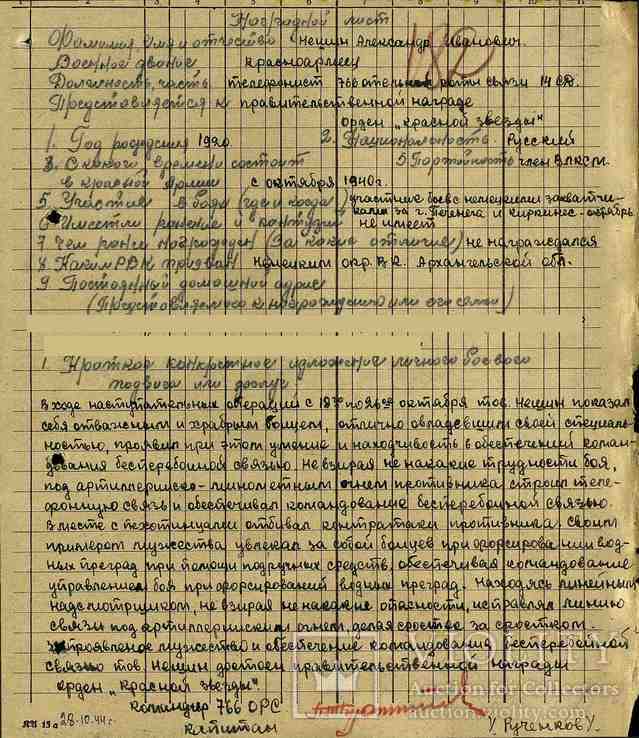 Наградной лист
Фамилия, имя и отчество Нешин Александр Иванович.
Военное звание красноармеец
Должность, часть телефонист 766 отдельной роты связи 14 СД.
Представляется к правительственной награде
орден „Красной звезды"
1. Год рождения 1920 2. Национальность Русский
3. С какого времени состоит 5. Партийность член ВЛКСМ.
в красной Армии с октября 1940г.
5. Участие в боях (где и когда) участник боев с немецкими захватчи-
ками за г. Петенега и Киркинес - октябрь
6. Имеет ли ранение и контузии не имеет
7. Чем ранее награжден (За какие отличие) не награждался
8. Каким РВК призван окр. В.К. Архангельской обл.
9. Постоянный домашний адрес
(Представляемого к награждению или его семьи)
1. Краткое конкретное изложение личного боевого
подвига или заслуг.
В ходе наступательных операций с октября тов. Нешин показал
себя отважным и храбрым бойцем, отлично овладевшим своей специаль-
ностью, проявил при этом умение и находчивость в обеспечении коман-
дования бесперебойной связью. Не взирая не накакие трудности боя,
под артиллерийско-минометным огнем противника строил теле-
фонную связь и обеспечивал командование бесперебойной связью.
Вместе с пехотинцами отбивал контратаки противника. Своим
примером мужества увлекал за собой бойцев при форсировании вод-
ных преград при помощи подручных средств, обеспечивая командование
управлением боя при форсировании водных преград. Находясь линейным
надсмотрщиком, не взирая не накакие опасности, исправлял линию
связи под артиллерийским огнем, делая сросток за сростком.
За проявленое мужество и обеспечение командования бесперебойной
связью тов. Нешин достоен правительственной награды
орден „Красной звезды".
Командир 766 ОРС
капитан /Рученков/.
28.10.44г.
VIOLITY
Auction for Collectors
auction.violity.com